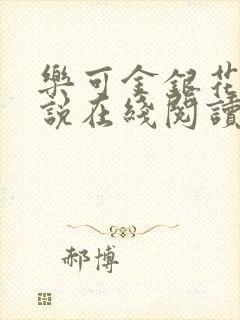 樂可金銀花
說在綫閱讀
郝博